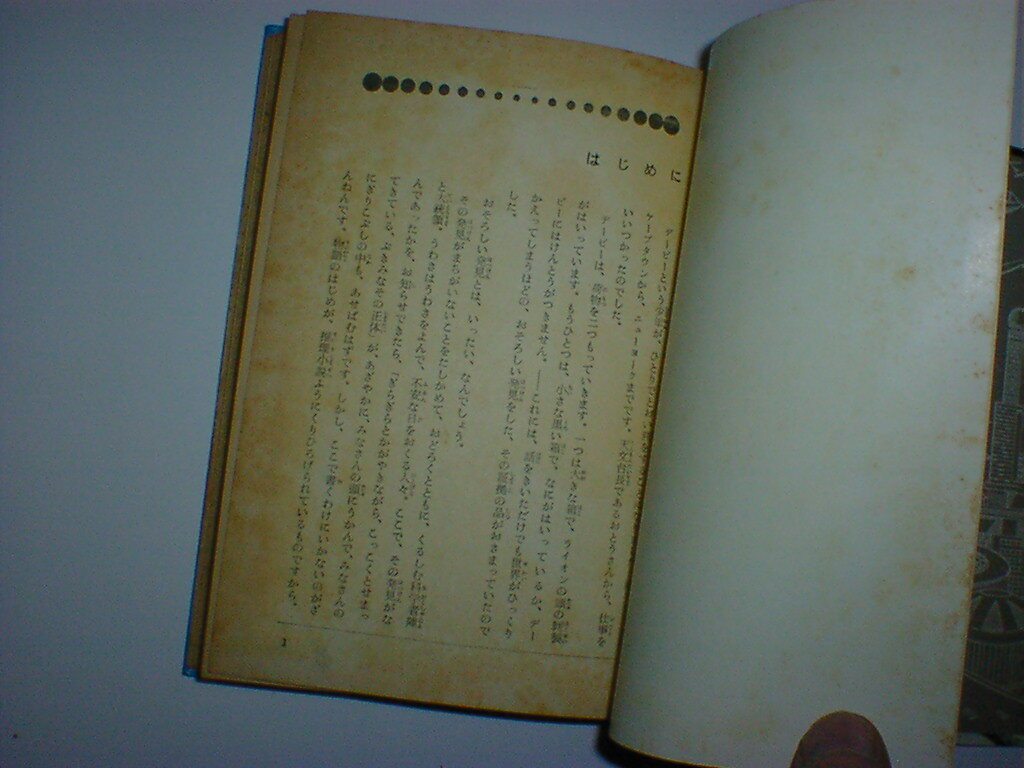 はじめに
デービーという少年が、ひとりで
ケープタウンから、ニューヨークまでです。天文台長であるおとうさんから、仕事を
いいつかったのでした。
デービーは、荷物を二つもっていきます。一つは大きな箱で、ライオンの
がはいっています。もうひとつは、小さな黒い箱で、なにがはいっているか、デー
ビーにはけんとうがつきません。――これには、話をきいただけでも世界がひっくり
かえってしまうほどの、おそろしい発見をした、その証拠の品がおさまっていたので
した。
おそろしい発見とは、いったい、なんでしょう。
その発見がまちがいないことをたしかめて、おどろくとともに、くるしむ科学者陣
と人種。うわさはうわさをよんで、不安な日をおくる人々。ここで、その発見がな
んであったかを、お知らせできたら、「きらきらとかがやきながら、こっこくとせまっ
てきている、ぶきみなその正体」が、あざやかに、みなさんの頭にうかんで、みなさんの
にぎりこぶしの中も、あせばむはずです。しかし、ここで書くわけにいかないのがざ
んねんです。物語のはじめが、推理小説ようにくりひろげられているものですから。
3